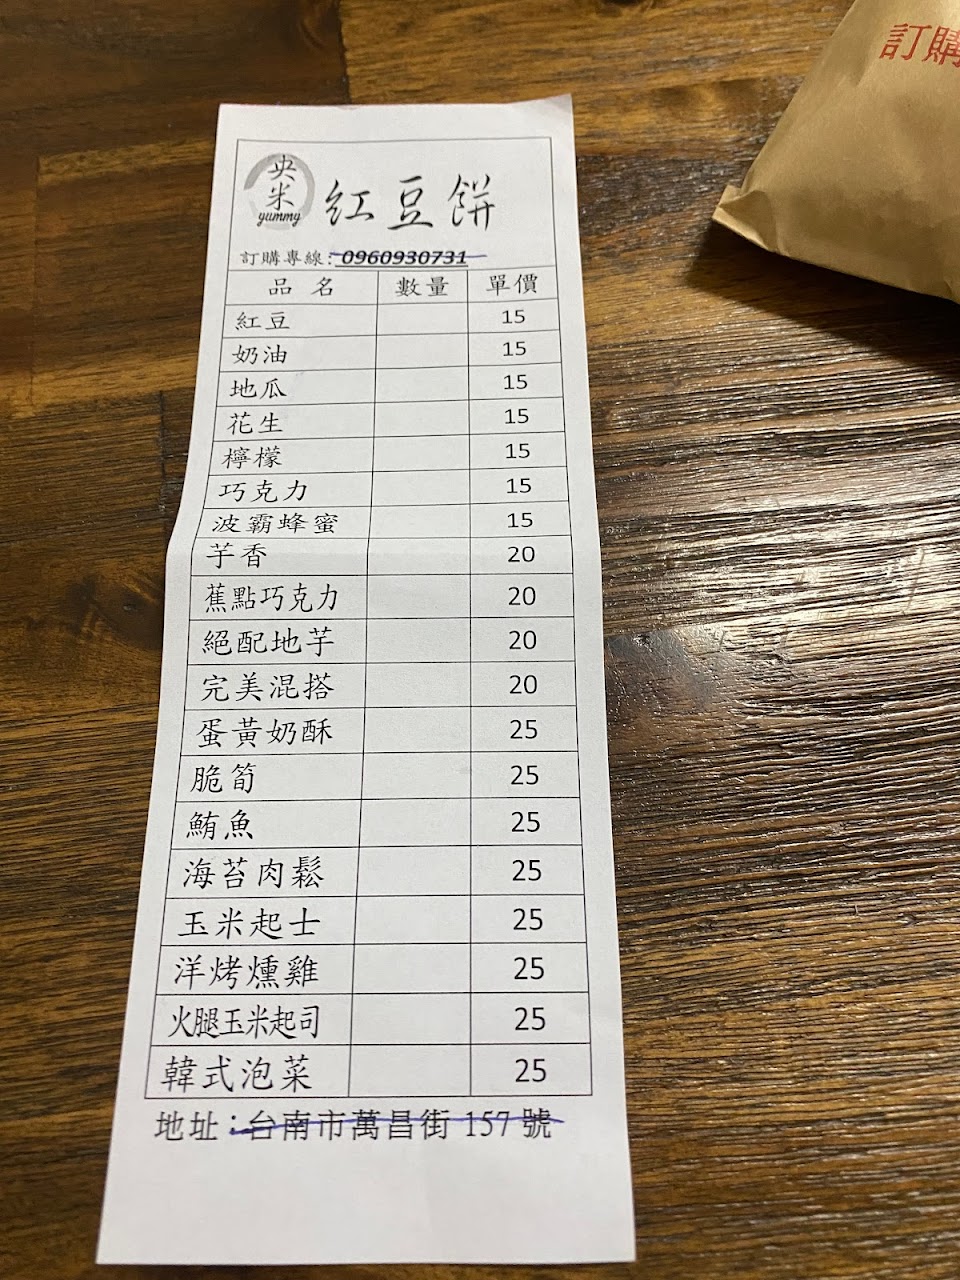 訂購
央米
yummy
紅豆餅
訂購專線：0960930731
品名 數量 單價
紅豆 15
奶油 15
地瓜 15
花生 15
檸檬 15
巧克力 15
波霸蜂蜜 15
芋香 20
蕉點巧克力 20
絕配地芋 20
完美混搭 20
蛋黃奶酥 25
脆筍 25
鮪魚 25
海苔肉鬆 25
玉米起士 25
洋烤燻雞 25
火腿玉米起司 25
韓式泡菜 25
地址：台南市萬昌街 157 號